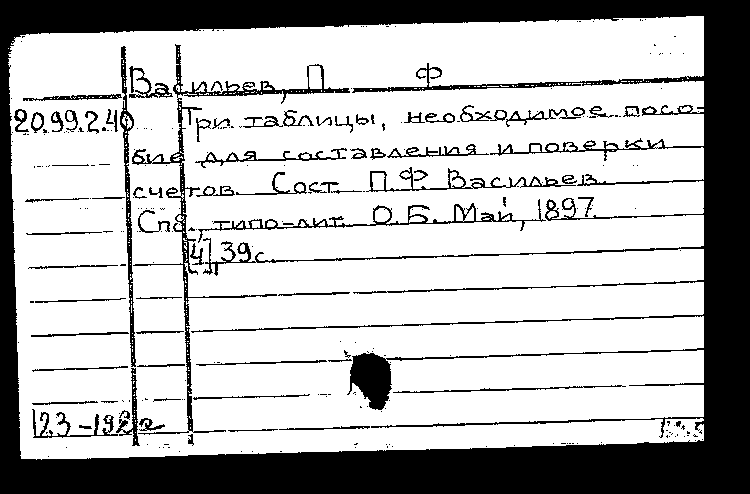 Васильев, П. Ф
20.99.2.40 Три таблицы, необходимое посо-
бие для составления и поверки
счетов. Сост. П.Ф. Васильев.
Спб., типо-лит. О.Б. Май, 1897.
[4], 39 с.